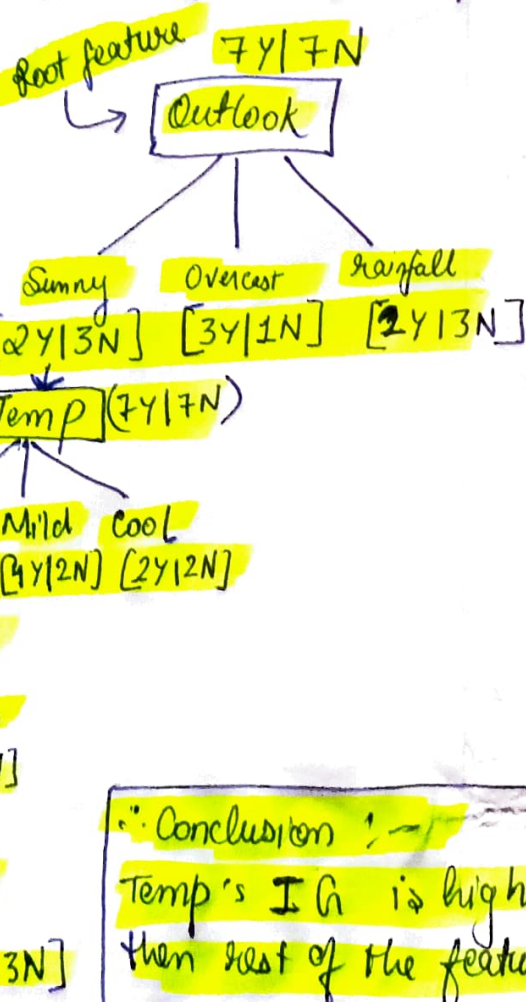 Root feature 7Y|7N
Outlook
Sunny Overcast rainfall
2Y|3N] [3Y|1N] [2Y|3N]
Temp (7Y|7N)
Mild Cool
[4Y|2N] [2Y|2N]
]
∴ Conclusion :-
Temp's IG is high
then rest of the featu
3N]